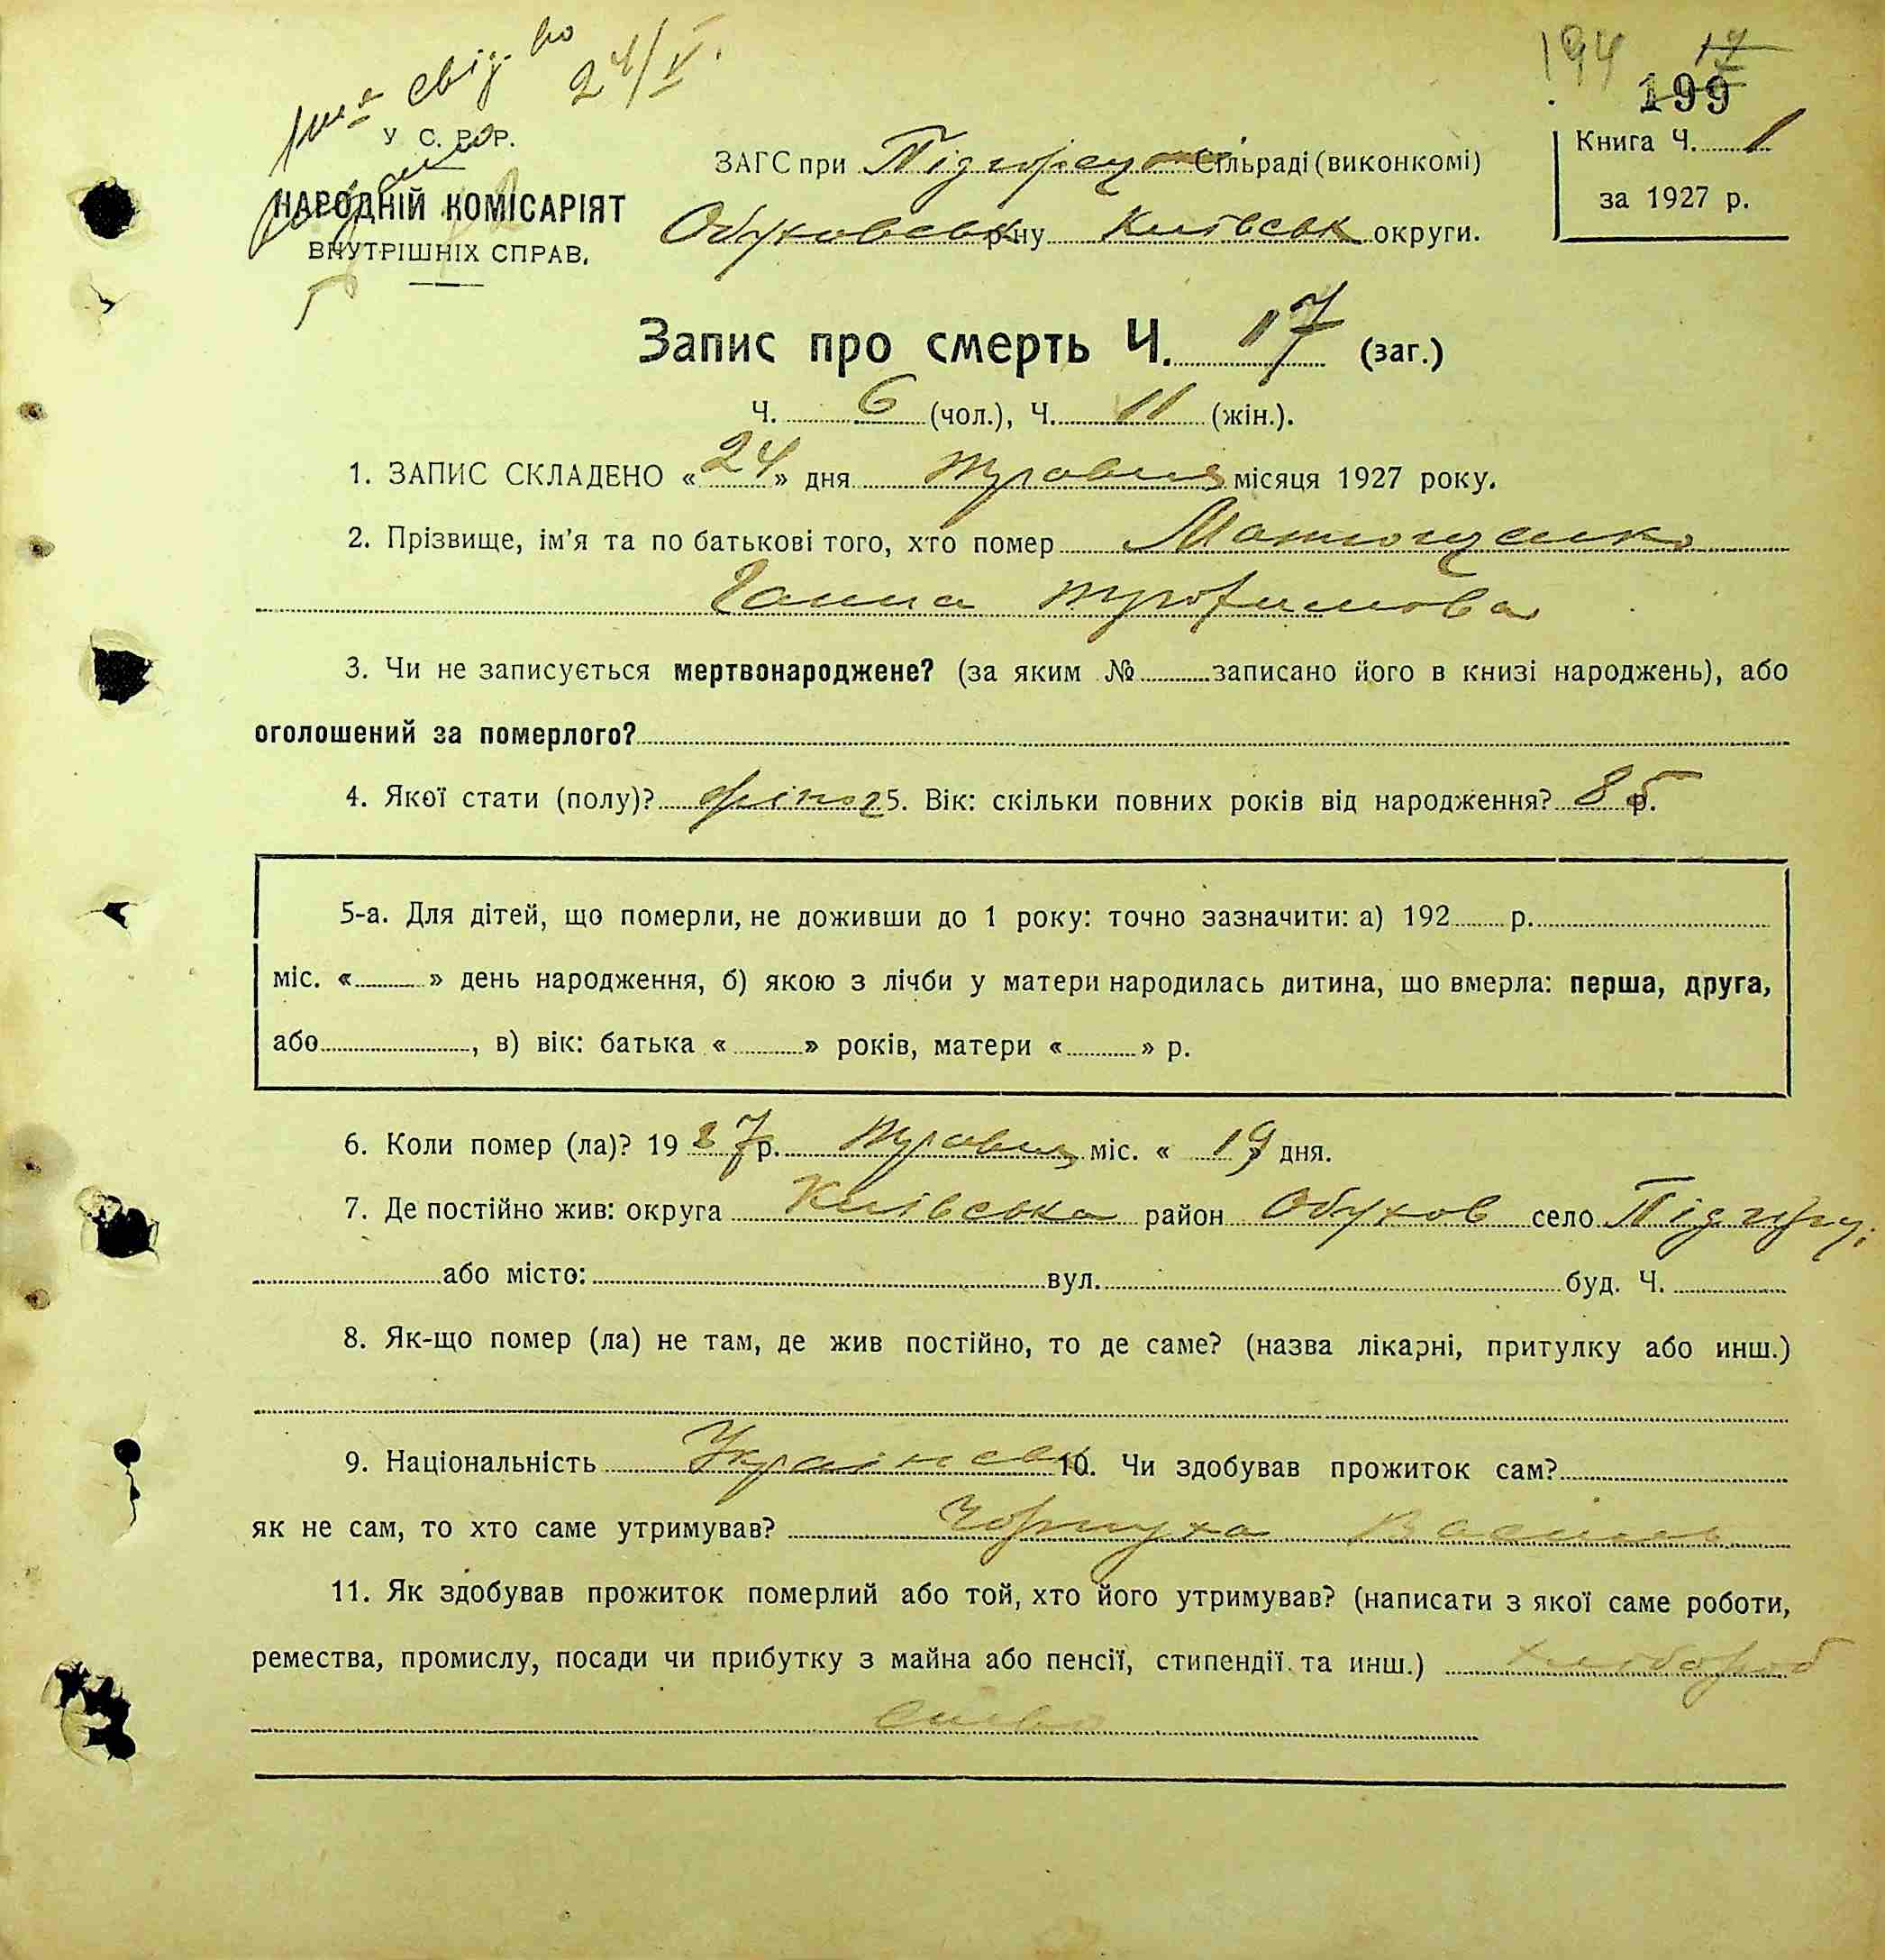 свід. во
24/V.
194 17
199
У С. Р. Р.
НАРОДНІЙ КОМІСАРІЯТ
ВНУТРІШНІХ СПРАВ.
ЗАГС при Підгорец Сільраді (виконкомі)
Обуховськ р-ну Київськ округи.
Книга Ч. 1
за 1927 р.
Запис про смерть Ч. 17 (заг.)
Ч. 6 (чол.), Ч. 11 (жін.).
1. ЗАПИС СКЛАДЕНО «24» дня Травня місяця 1927 року.
2. Прізвище, ім'я та по батькові того, хто помер Матющенко
Ганна Трофимова
3. Чи не записується мертвонароджене? (за яким № записано його в книзі народжень), або
оголошений за померлого?
4. Якої стати (полу)? жіноч 5. Вік: скільки повних років від народження? 85 р.
5-а. Для дітей, що померли, не доживши до 1 року: точно зазначити: а) 192 р.
міс. « » день народження, б) якою з лічби у матери народилась дитина, що вмерла: перша, друга,
або , в) вік: батька « » років, матери « » р.
6. Коли помер (ла)? 1927 р. Травня міс. « 19 дня.
7. Де постійно жив: округа Київська район Обухов село Підгірці
або місто: вул. буд. Ч.
8. Як-що помер (ла) не там, де жив постійно, то де саме? (назва лікарні, притулку або инш.)
9. Національність Українськ 10. Чи здобував прожиток сам?
як не сам, то хто саме утримував? Чорнуха Василь
11. Як здобував прожиток померлий або той, хто його утримував? (написати з якої саме роботи,
ремества, промислу, посади чи прибутку з майна або пенсії, стипендії та инш.) хлібороб
ство